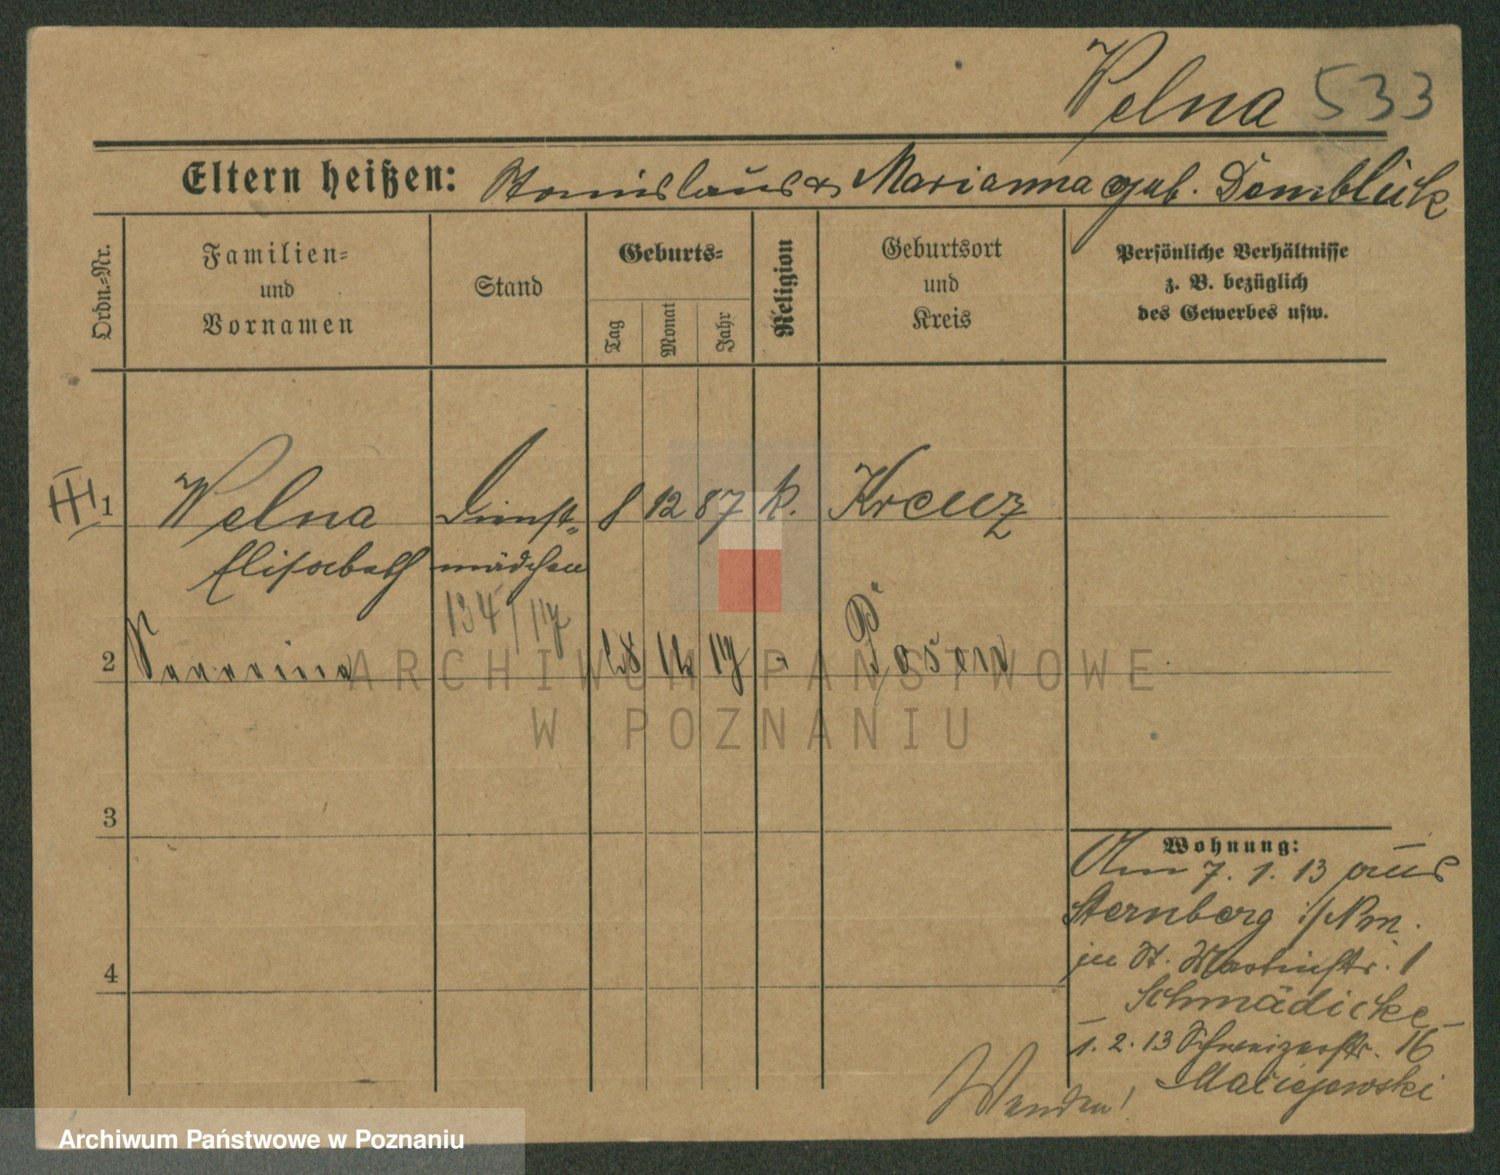 Welna 533
Eltern heißen: Stanislaus & Marianna geb. Dembluck
Ordn.-Nr.
Familien-
und
Vornamen
Stand
Geburts-
Tag
Monat
Jahr
Religion
Geburtsort
und
Kreis
Persönliche Verhältnisse
z. B. bezüglich
des Gewerbes usw.
1 Welna Dienst- 8 12 87 k. Kreuz
Elisabeth mädchen
134/17
2 Severina 28 12 17 Posen
3
4
Wohnung:
Am 7. 1. 13 aus
Sternberg i/Nm.
in St. Martinstr. 1
Schmädicke
1. 2. 13 Schweizerstr. 16
Maciejewski
Wenden!
ARCHIWUM PAŃSTWOWE
W POZNANIU
Archiwum Państwowe w Poznaniu